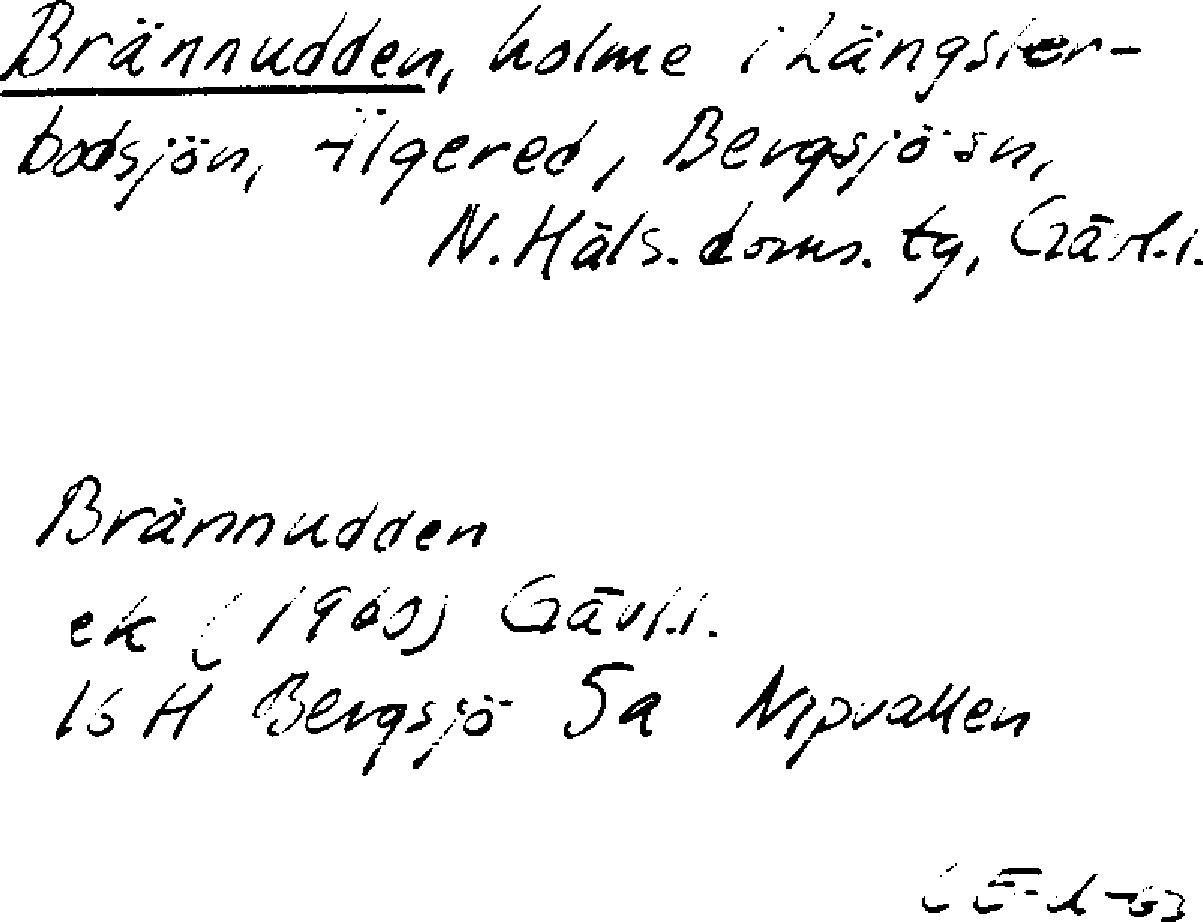 Brännudden, holme i Längster-
bodsjön, Älgered, Bergsjö sn,
N. Häls. doms. tg, Gävl. l.
Brännudden
ek (1960) Gävl. l.
16 H Bergsjö 5a Nipvallen